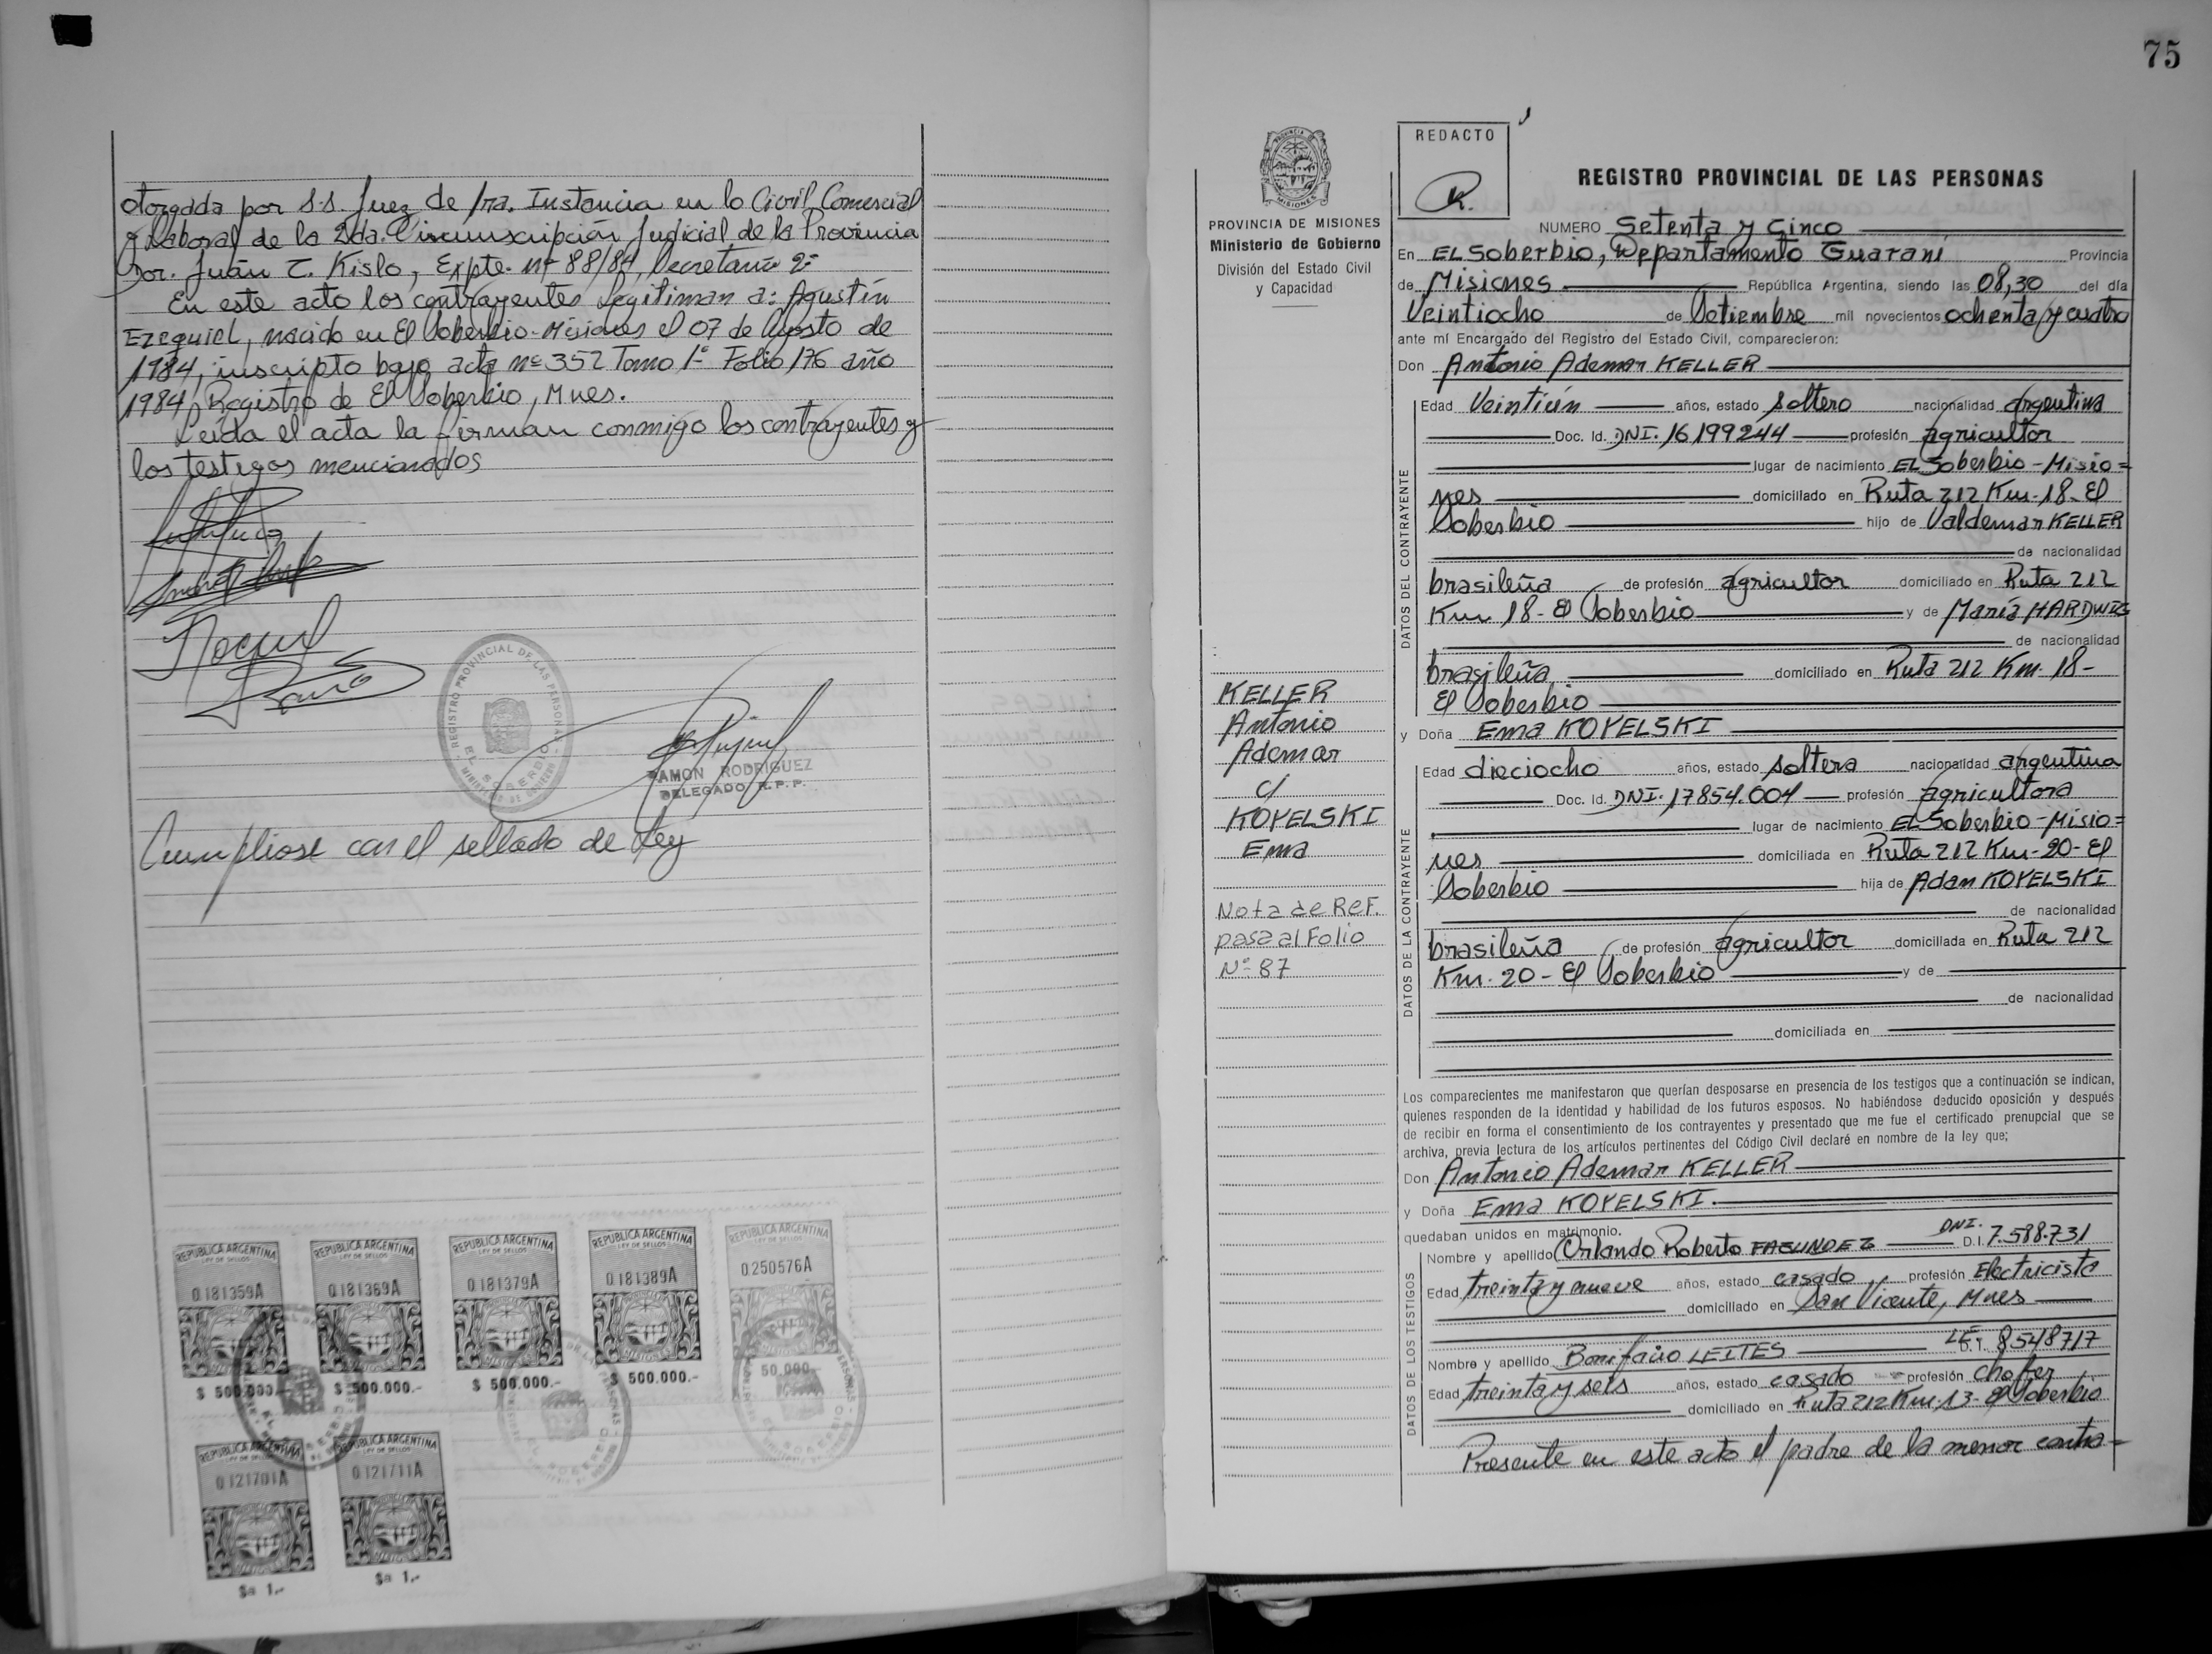 otorgada por S.S. Juez de 1ra. Instancia en lo Civil, Comercial
y Laboral de la 2da. Circunscripción Judicial de la Provincia
Dor. Juán C. Kislo, Expte. nº 88/84, Secretaría 2ª
En este acto los contrayentes legitiman a: Agustín
Ezequiel, nacido en El Soberbio-Misiones el 07 de Agosto de
1984, inscripto bajo acta nº 352 Tomo 1º Folio 176 año
1984, Registro de El Soberbio, Mnes.
Leida el acta la firman conmigo los contrayentes y
los testigos mencionados
REGISTRO PROVINCIAL DE LAS PERSONAS
EL SOBERBIO
RAMON RODRIGUEZ
DELEGADO R.P.P.
Cumpliose con el sellado de Ley
REPUBLICA ARGENTINA
LEY DE SELLOS
0181359A
MISIONES
$ 500.000.-
REPUBLICA ARGENTINA
LEY DE SELLOS
0181369A
MISIONES
$ 500.000.-
REPUBLICA ARGENTINA
LEY DE SELLOS
0181379A
MISIONES
$ 500.000.-
REPUBLICA ARGENTINA
LEY DE SELLOS
0181389A
MISIONES
$ 500.000.-
REPUBLICA ARGENTINA
LEY DE SELLOS
0250576A
50.000.-
REPUBLICA ARGENTINA
LEY DE SELLOS
0121701A
MISIONES
$a 1,-
REPUBLICA ARGENTINA
LEY DE SELLOS
0121711A
MISIONES
$a 1,-
75
PROVINCIA DE MISIONES
Ministerio de Gobierno
División del Estado Civil
y Capacidad
REDACTO
R.
REGISTRO PROVINCIAL DE LAS PERSONAS
NUMERO Setenta y Cinco
En EL Soberbio, Departamento Guaraní Provincia
de Misiones República Argentina, siendo las 08,30 del día
Veintiocho de Setiembre mil novecientos ochenta y cuatro
ante mí Encargado del Registro del Estado Civil, comparecieron:
Don Antonio Ademar KELLER
DATOS DEL CONTRAYENTE
Edad Veintiún años, estado soltero nacionalidad argentina
Doc. Id. DNI. 16199244 profesión agricultor
lugar de nacimiento EL Soberbio-Misio=
nes domiciliado en Ruta 212 Km-18-El
Soberbio hijo de Valdemar KELLER
de nacionalidad
brasileña de profesión agricultor domiciliado en Ruta 212
Km 18-El Soberbio y de María HARDWIG
de nacionalidad
brasileña domiciliado en Ruta 212 Km. 18-
El Soberbio
y Doña Ema KOVELSKI
KELLER
Antonio
Ademar
c/
KOVELSKI
Ema
Nota de Ref.
pasa al Folio
Nº 87
DATOS DE LA CONTRAYENTE
Edad dieciocho años, estado soltera nacionalidad argentina
Doc. Id. DNI. 17854.004 profesión agricultora
lugar de nacimiento EL Soberbio-Misio=
nes domiciliada en Ruta 212 Km-20-El
Soberbio hija de Adan KOVELSKI
de nacionalidad
brasileña de profesión agricultor domiciliada en Ruta 212
Km. 20-El Soberbio y de
de nacionalidad
domiciliada en
Los comparecientes me manifestaron que querían desposarse en presencia de los testigos que a continuación se indican,
quienes responden de la identidad y habilidad de los futuros esposos. No habiéndose deducido oposición y después
de recibir en forma el consentimiento de los contrayentes y presentado que me fue el certificado prenupcial que se
archiva, previa lectura de los artículos pertinentes del Código Civil declaré en nombre de la ley que;
Don Antonio Ademar KELLER
y Doña Ema KOVELSKI.
quedaban unidos en matrimonio.
DATOS DE LOS TESTIGOS
Nombre y apellido Orlando Roberto FAGUNDEZ DNI. D.I. 7.598.731
Edad treinta y nueve años, estado casado profesión Electricista
domiciliado en San Vicente, Mnes
Nombre y apellido Bonifacio LEITES LE. D.I. 8548717
Edad treinta y seis años, estado casado profesión chofer
domiciliado en Ruta 212 Km.13-El Soberbio
Presente en este acto el padre de la menor contra=